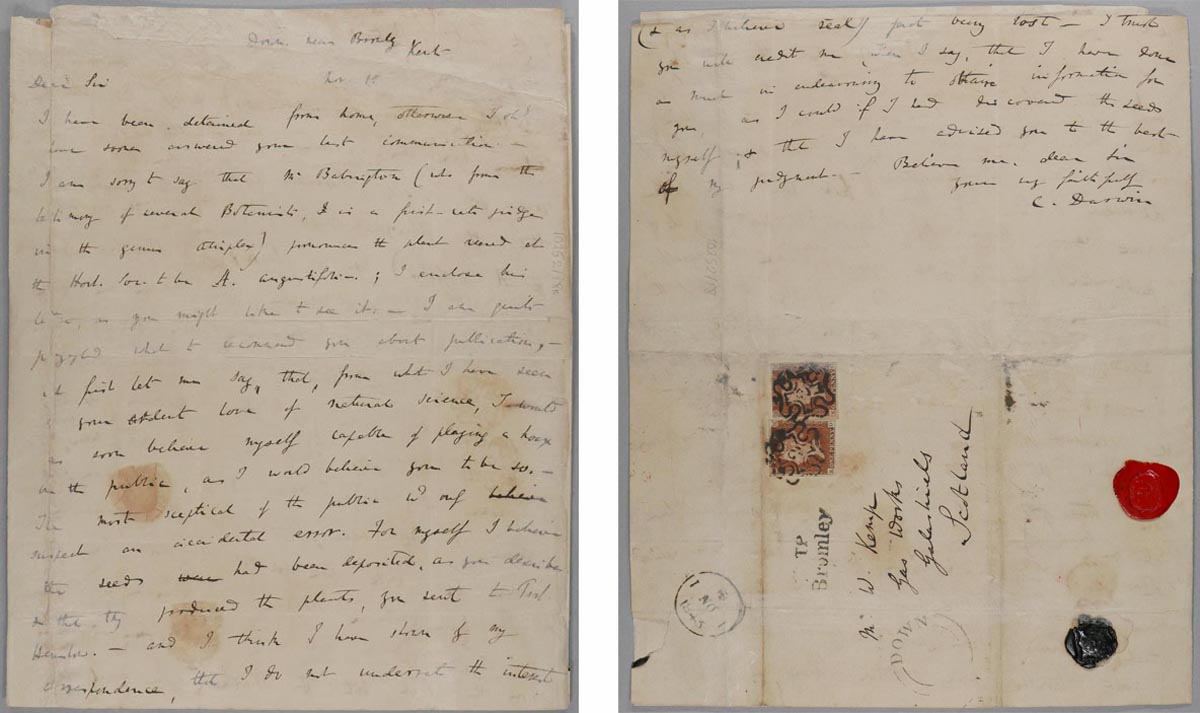 Down near Bromley Kent
Nov. 1st
Dear Sir
I have been detained from home, otherwise I shd
have sooner answered your last communication. —
I am sorry to say that Mr Babington (who from the
testimony of several Botanists, is a first-rate judge
in the genus atriplex) pronounces the plant reared at
the Hort. Soc. to be A. angustifolia. ; I enclose his
letter, as you might like to see it. — I am quite
perplexed what to recommend you about publication, —
first let me say, that, from what I have seen
your ardent love of natural science, I would
as soon believe myself capable of playing a hoax
on the public, as I would believe you to be so. —
The most sceptical of the public wd only believe
suspect an accidental error. For myself I believe
the seeds were had been deposited, as you describe
& that they produced the plants, you sent to Prof.
Henslow. — and I think I have shown by my
correspondence, that I do not underrate the interest
(& as I believe real) fact being lost — I trust
you will credit me, when I say, that I have done
as much in endeavouring to obtain information for
you, as I could if I had discovered the seeds
myself ; & that I have advised you to the best
of my judgment. — Believe me, dear Sir
yours very faithfully
C. Darwin
Mr W. Kemp
Gas Works
Galashiels
Scotland
TP
Bromley